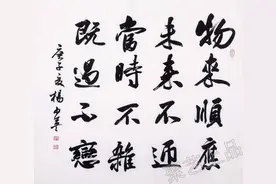 物來順應
未來不迎
當時不雜
既過不戀
庚子夏楊